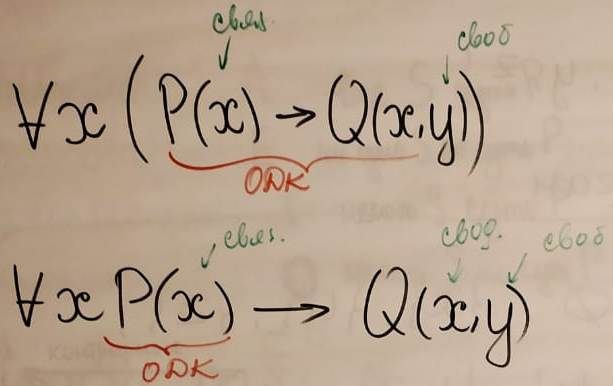 связ. своб
∀x (P(x) → Q(x,y))
ОДК
связ. своб. своб
∀x P(x) → Q(x,y)
ОДК